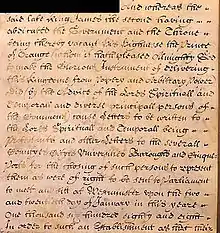 And whereas the
said late King James the second having
abdicated the Government and the Throne
being thereby vacant His Highnesse the Prince
of Orange (whom it hath pleased Almighty God
to make the glorious Instrument of delivering
this Kingdome from Popery and Arbitrary Power
did (by the Advice of the Lords Spirituall and
Temporall and diverse principall persons of
the Commons) cause Letters to be written to
the Lords Spirituall and Temporall being
Protestants and other Letters to the severall
Countyes Cityes Universities Burroughs and Cinque
Ports for the chosing of such persons to represent
them as were of right to be sent to Parliament
to meet and sitt at Westminster upon the two
and twentyeth day of January in this yeare
One thousand six hundred eighty and eight
In order to such an Establishment as that